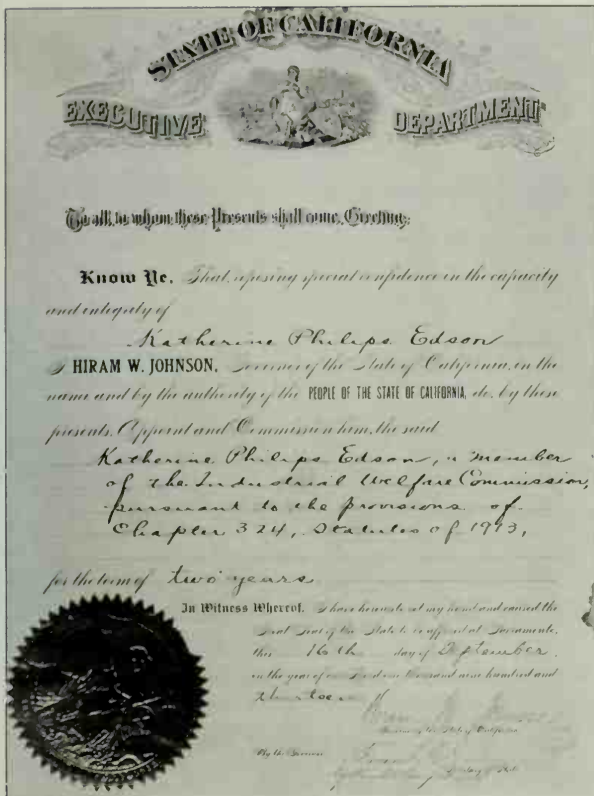 STATE OF CALIFORNIA
EXECUTIVE DEPARTMENT
To all to whom these Presents shall come, Greeting:
Know Ye, That, reposing special confidence in the capacity
and integrity of
Katherine Philips Edson
I HIRAM W. JOHNSON, Governor of the State of California, in the
name and by the authority of the PEOPLE OF THE STATE OF CALIFORNIA, do, by these
presents, Appoint and Commission him, the said
Katherine Philips Edson, a member
of the Industrial Welfare Commission,
pursuant to the provisions of
Chapter 324, Statutes of 1913,
for the term of two years
In Witness Whereof, I have hereunto set my hand and caused the
Great Seal of the State to be affixed at Sacramento,
this 16th day of September
in the year of our Lord one thousand nine hundred and
thirteen
Governor of the State of California
By the Governor